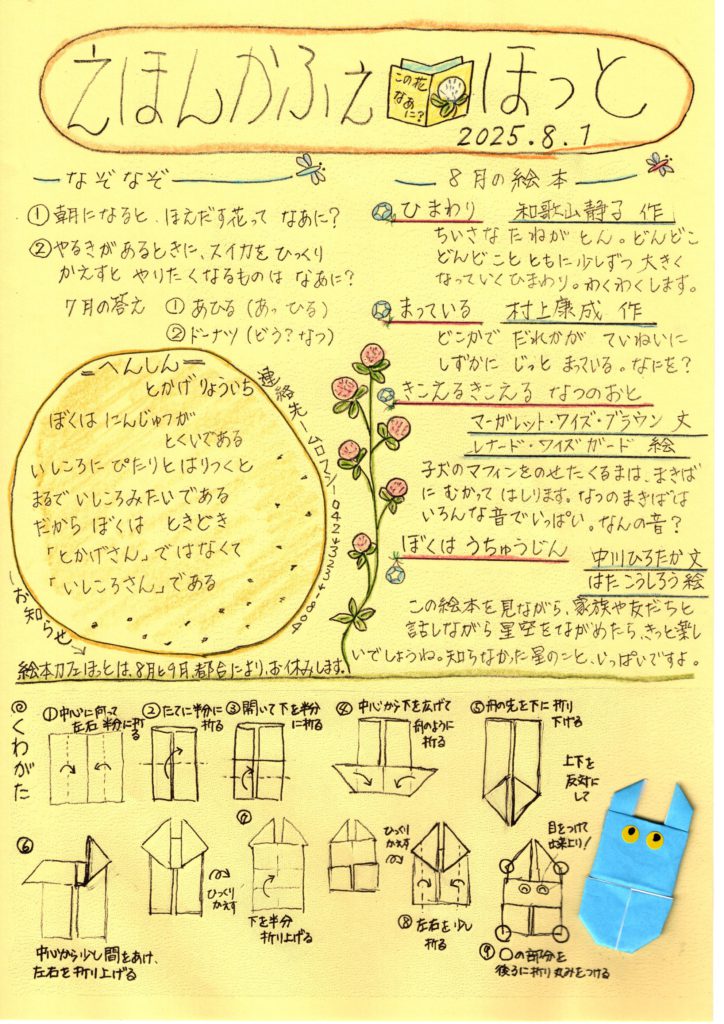 えほんかふぇ ほっと
この花
なあに?
2025.8.1
なぞなぞ
① 朝になると、ほえだす花って なあに?
② やるきがあるときに、スイカを ひっくり
かえすと やりたくなるものは なあに?
7月の答え ① あひる (あっ ひる)
② ドーナツ (どう?なつ)
=へんしん=
とかげりょういち
ぼくは にんじゅつが
とくいである
いしころに ぴたりと はりつくと
まるで いしころみたいである
だから ぼくは ときどき
「とかげさん」ではなくて
「いしころさん」である
連絡先―ムロマシー0424323314804
お知らせ
絵本カフェほっとは、8月と9月、都合により、お休みします。
8月の絵本
ひまわり 和歌山静子 作
ちいさな たねが とん。どんどこ
どんどことともに少しずつ大きく
なっていくひまわり。わくわくします。
まっている 村上康成 作
どこかで だれかが ていねいに
しずかに じっと まっている。なにを?
きこえるきこえる なつのおと
マーガレット・ワイズ・ブラウン 文
レナード・ワイズガード 絵
子犬のマフィンをのせたくるまは、まきば
に むかって はしります。なつのまきばは
いろんな音でいっぱい。なんの音?
ぼくは うちゅうじん 中川ひろたか 文
はたこうしろう 絵
この絵本を見ながら、家族や友だちと
話しながら 星空をながめたら、きっと楽し
いでしょうね。知らなかった星のこと、いっぱいですよ。
◎くわがた
①中心に向って
左右 半分に折る
②たてに半分に
折る
③開いて下を半分
に折る
④中心から下を広げて
舟のように
折る
⑤舟の先を下に折り
下げる
上下を
反対に
して
⑥
中心から少し間をあけ、
左右を折り上げる
ひっくり
かえす
⑦
下を半分
折り上げる
ひっくり
かえす
⑧左右を少し
折る
目をつけて
出来上り!
⑨○の部分を
後ろに折り丸みをつける